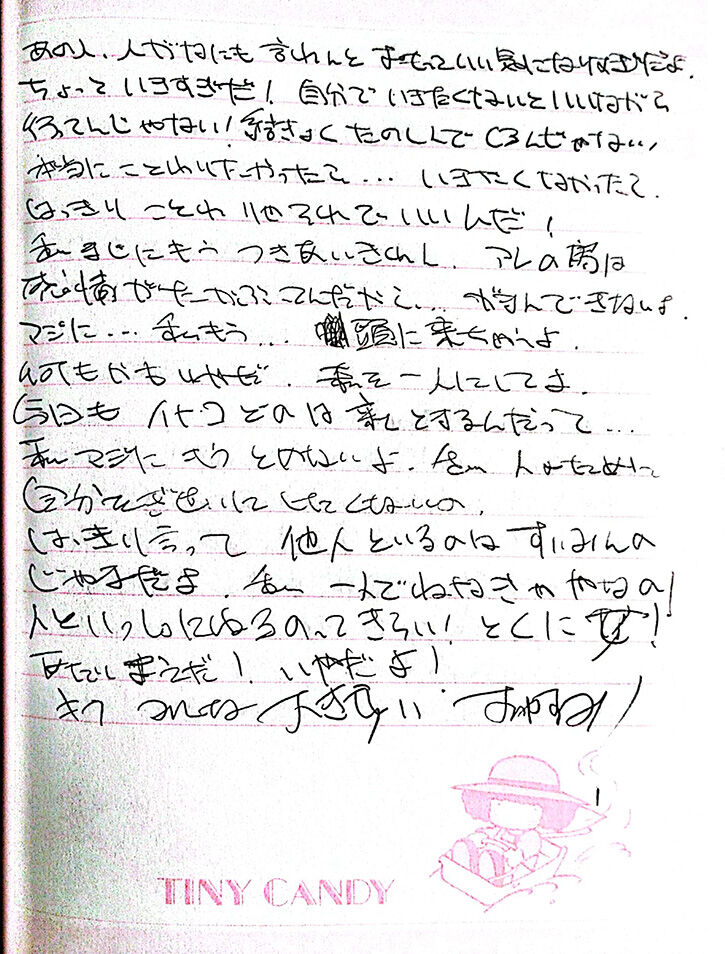 あの人、人がなにも言わんと思っていい気になりすぎだよ。
ちょっといきすぎだ！自分でいきたくないといいながら
行ってんじゃない！結きょくたのしんでくるんじゃない、
本当にことわりたかったら... いきたくなかったら
はっきりことわりゃそれでいいんだ！
私まじにもうつきあいきれん。アレの為は
がたかぶってんだから... がまんできないよ。
マジに... 私もう... 頭に来ちゃうよ。
何もかもいやだ。私を一人にしてよ。
今日もイトコどのは来とするんだって...
私マジにもうとめないよ。私人のために
自分をぎせいにしたくないの。
はっきり言って他人といるのはすいみんの
じゃまだよ。私一人でねなきゃやなの！
人といっしょにねるのってきらい！とくに
いやだよ！
みんな大きらい おやすみ！
TINY CANDY